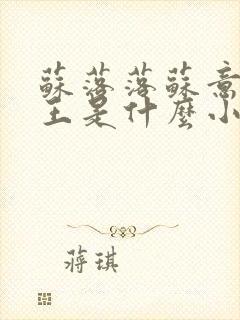 蘇落落蘇意
主是什麼小
蔣琪